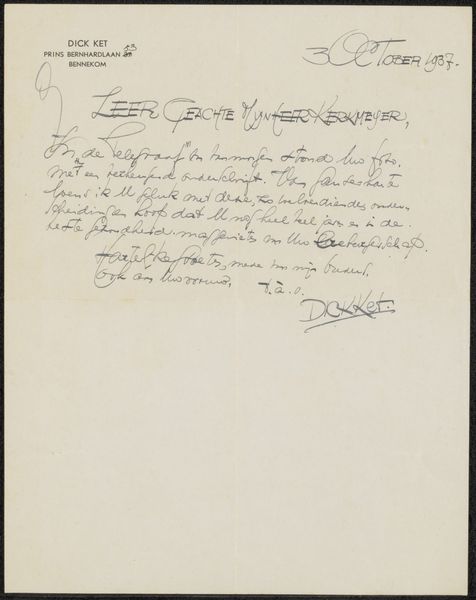 DICK KET
PRINS BERNHARDLAAN 53
BENNEKOM
3 OCTOBER 1937.
ZEER GEACHTE MIJNHEER KERKMEYER,
In de "Telegraaf" van vanmorgen stond Uw foto.
met een onderschrift. Van ganscher harte
wensch ik U geluk met deze, zo welverdiende, onder-
scheiding en hoop dat U nog heel veel jaren in de
beste gezondheid moge genieten van Uw
Hartelijke groeten, mede van mijn ouders,
Ook aan Uw vrouw.
t. à. v.
DICK KET.